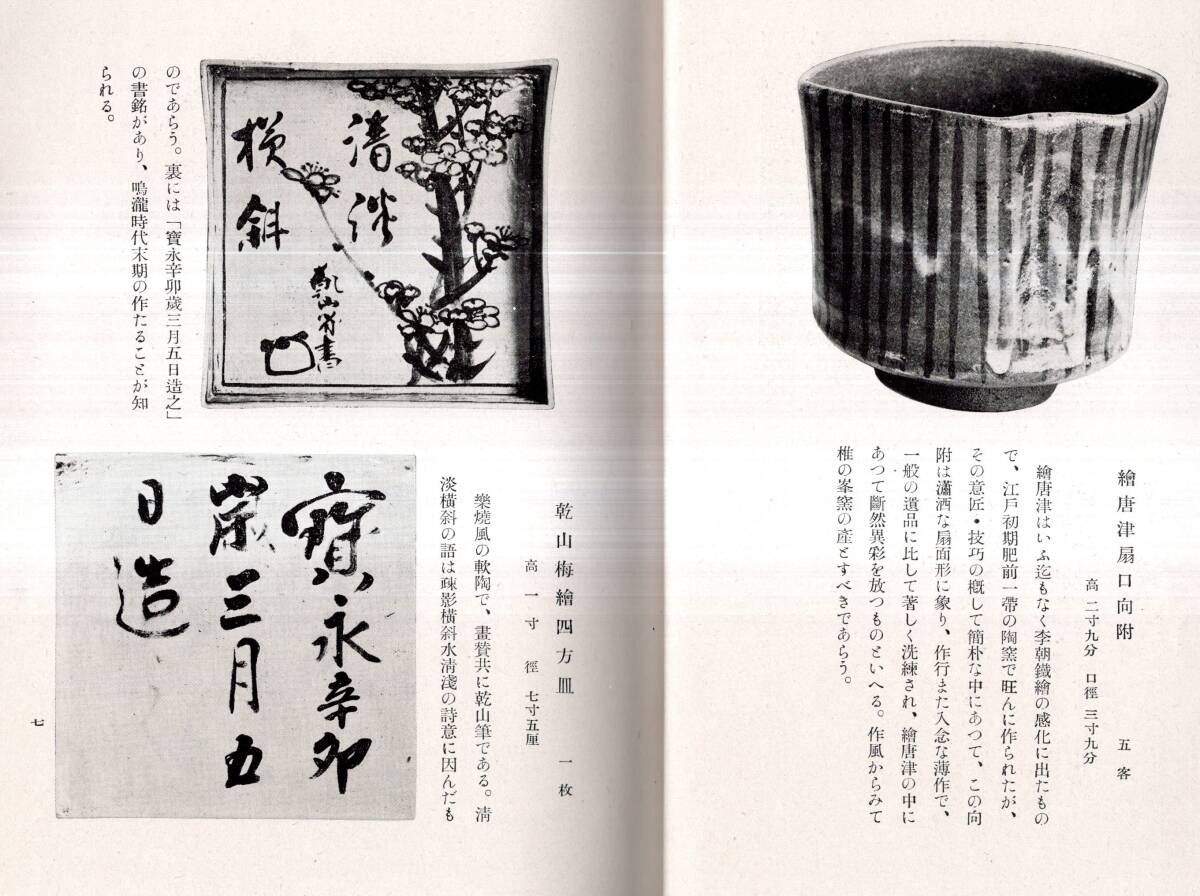 繪唐津扇口向附　五客
高 二寸九分　口徑 三寸九分
繪唐津はいふ迄もなく李朝鐵繪の感化に出たもの
で、江戸初期肥前一帶の陶窯で旺んに作られたが、
その意匠・技巧の概して簡朴な中にあつて、この向
附は瀟洒な扇面形に象り、作行また入念な薄作で、
一般の遺品に比して著しく洗練され、繪唐津の中に
あつて斷然異彩を放つものといへる。作風からみて
椎の峯窯の產とすべきであらう。
乾山梅繪四方皿　一枚
高 一寸　徑 七寸五厘
樂燒風の軟陶で、畫賛共に乾山筆である。淸
淡橫斜の語は疎影橫斜水淸淺の詩意に因んだも
のであらう。裏には「寶永辛卯歲三月五日造之」
の書銘があり、鳴瀧時代末期の作たることが知
られる。
清淡
横斜
乾山省書
寶永辛卯
歲三月五
日造
七